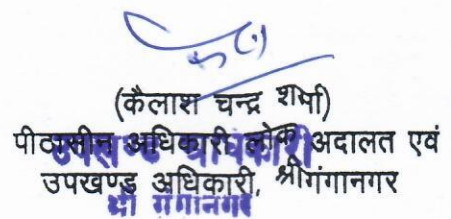 (कैलाश चन्द्र शर्मा)
पीठासीन अधिकारी, लोक अदालत एवं
उपखण्ड अधिकारी, श्रीगंगानगर
उपखण्ड अधिकारी
श्री गंगानगर